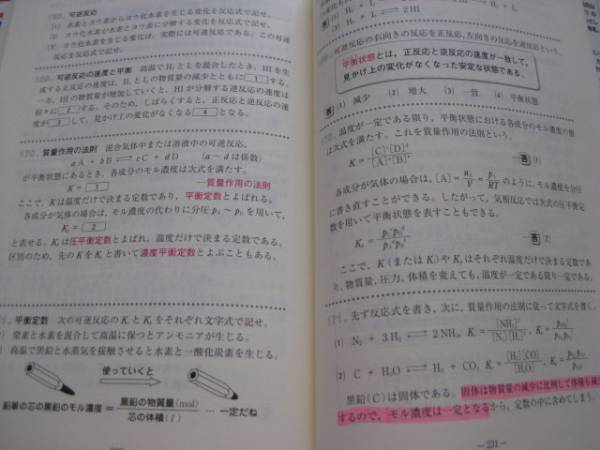 可逆反応
(1) 水素とヨウ素からヨウ化水素を生じる変化を反応式で記せ。
(2) ヨウ化水素が水素とヨウ素に分解する変化を反応式で記せ。
(3) ヨウ化水素を生じる変化は，実際には可逆反応である。この可逆
反応を反応式で記せ。
可逆反応の速度と平衡 高温でH₂とI₂を混合したとき，HIを生
成する正反応の速度は，H₂とI₂の物質量の減少とともに 1 する。
一方，HIの物質量が増加していくと，HIが分解する逆反応の速度は
徐々に 2 する。そのため，しばらくすると，正反応と逆反応の速
度が 3 して，見かけ上の変化がなくなる 4 となる。
170. 質量作用の法則 混合気体中または溶液中の可逆反応，
aA + bB ⇄ cC + dD (a～dは係数)
が平衡状態にあるとき，各成分のモル濃度は次式を満たす。
K = 1 ―質量作用の法則
ここで，Kは温度だけで決まる定数であり，平衡定数とよばれる。
各成分が気体の場合は，モル濃度の代わりに分圧 を用いて，
Kp = 2
と表せる。Kpは圧平衡定数とよばれ，温度だけで決まる定数である。
区別のため，先のKをKcと書いて濃度平衡定数とよぶこともある。
平衡定数 次の可逆反応のKとKpをそれぞれ文字式で記せ。
窒素と水素を混合して高温に保つとアンモニアが生じる。
高温で黒鉛と水蒸気を接触させると水素と一酸化炭素を生じる。
使っていくと
鉛筆の芯の黒鉛のモル濃度 = 黒鉛の物質量(mol) / 芯の体積(l) … 一定だね
(3) H₂ + I₂ ⇄ 2HI
可逆反応の右向きの反応を正反応，左向きの反応を逆反応という。
平衡状態とは，正反応と逆反応の速度が一致して，
見かけ上の変化がなくなった安定な状態である。
答 (1) 減少 (2) 増大 (3) 一致 (4) 平衡状態
170. 温度が一定である限り，平衡状態における各成分のモル濃度の間
は次式を満たす。これを質量作用の法則という。
K = [C]ᶜ[D]ᵈ / [A]ᵃ[B]ᵇ 答 (1)
各成分が気体の場合は，[A] = nA/V = pA/RT のように，モル濃度を分圧
に書き直すことができる。したがって，気相反応では次式の圧平衡定
数を用いて平衡状態を表すこともできる。
答 (2)
ここで，K(またはKc)やKpはそれぞれ温度だけで決まる定数であ
り，物質量，圧力，体積を変えても，温度が一定である限り一定である。
先ず反応式を書き，次に，質量作用の法則に従って文字式を書く。
(1) N₂ + 3H₂ ⇄ 2NH₃, K = [NH₃]² / [N₂][H₂]³
(2) C + H₂O ⇄ H₂ + CO, K = [H₂][CO] / [H₂O]
黒鉛(C)は固体である。固体は物質量の減少に比例して体積も減
するので，モル濃度は一定となるから，定数の中に含めてしまう。
- 231 -